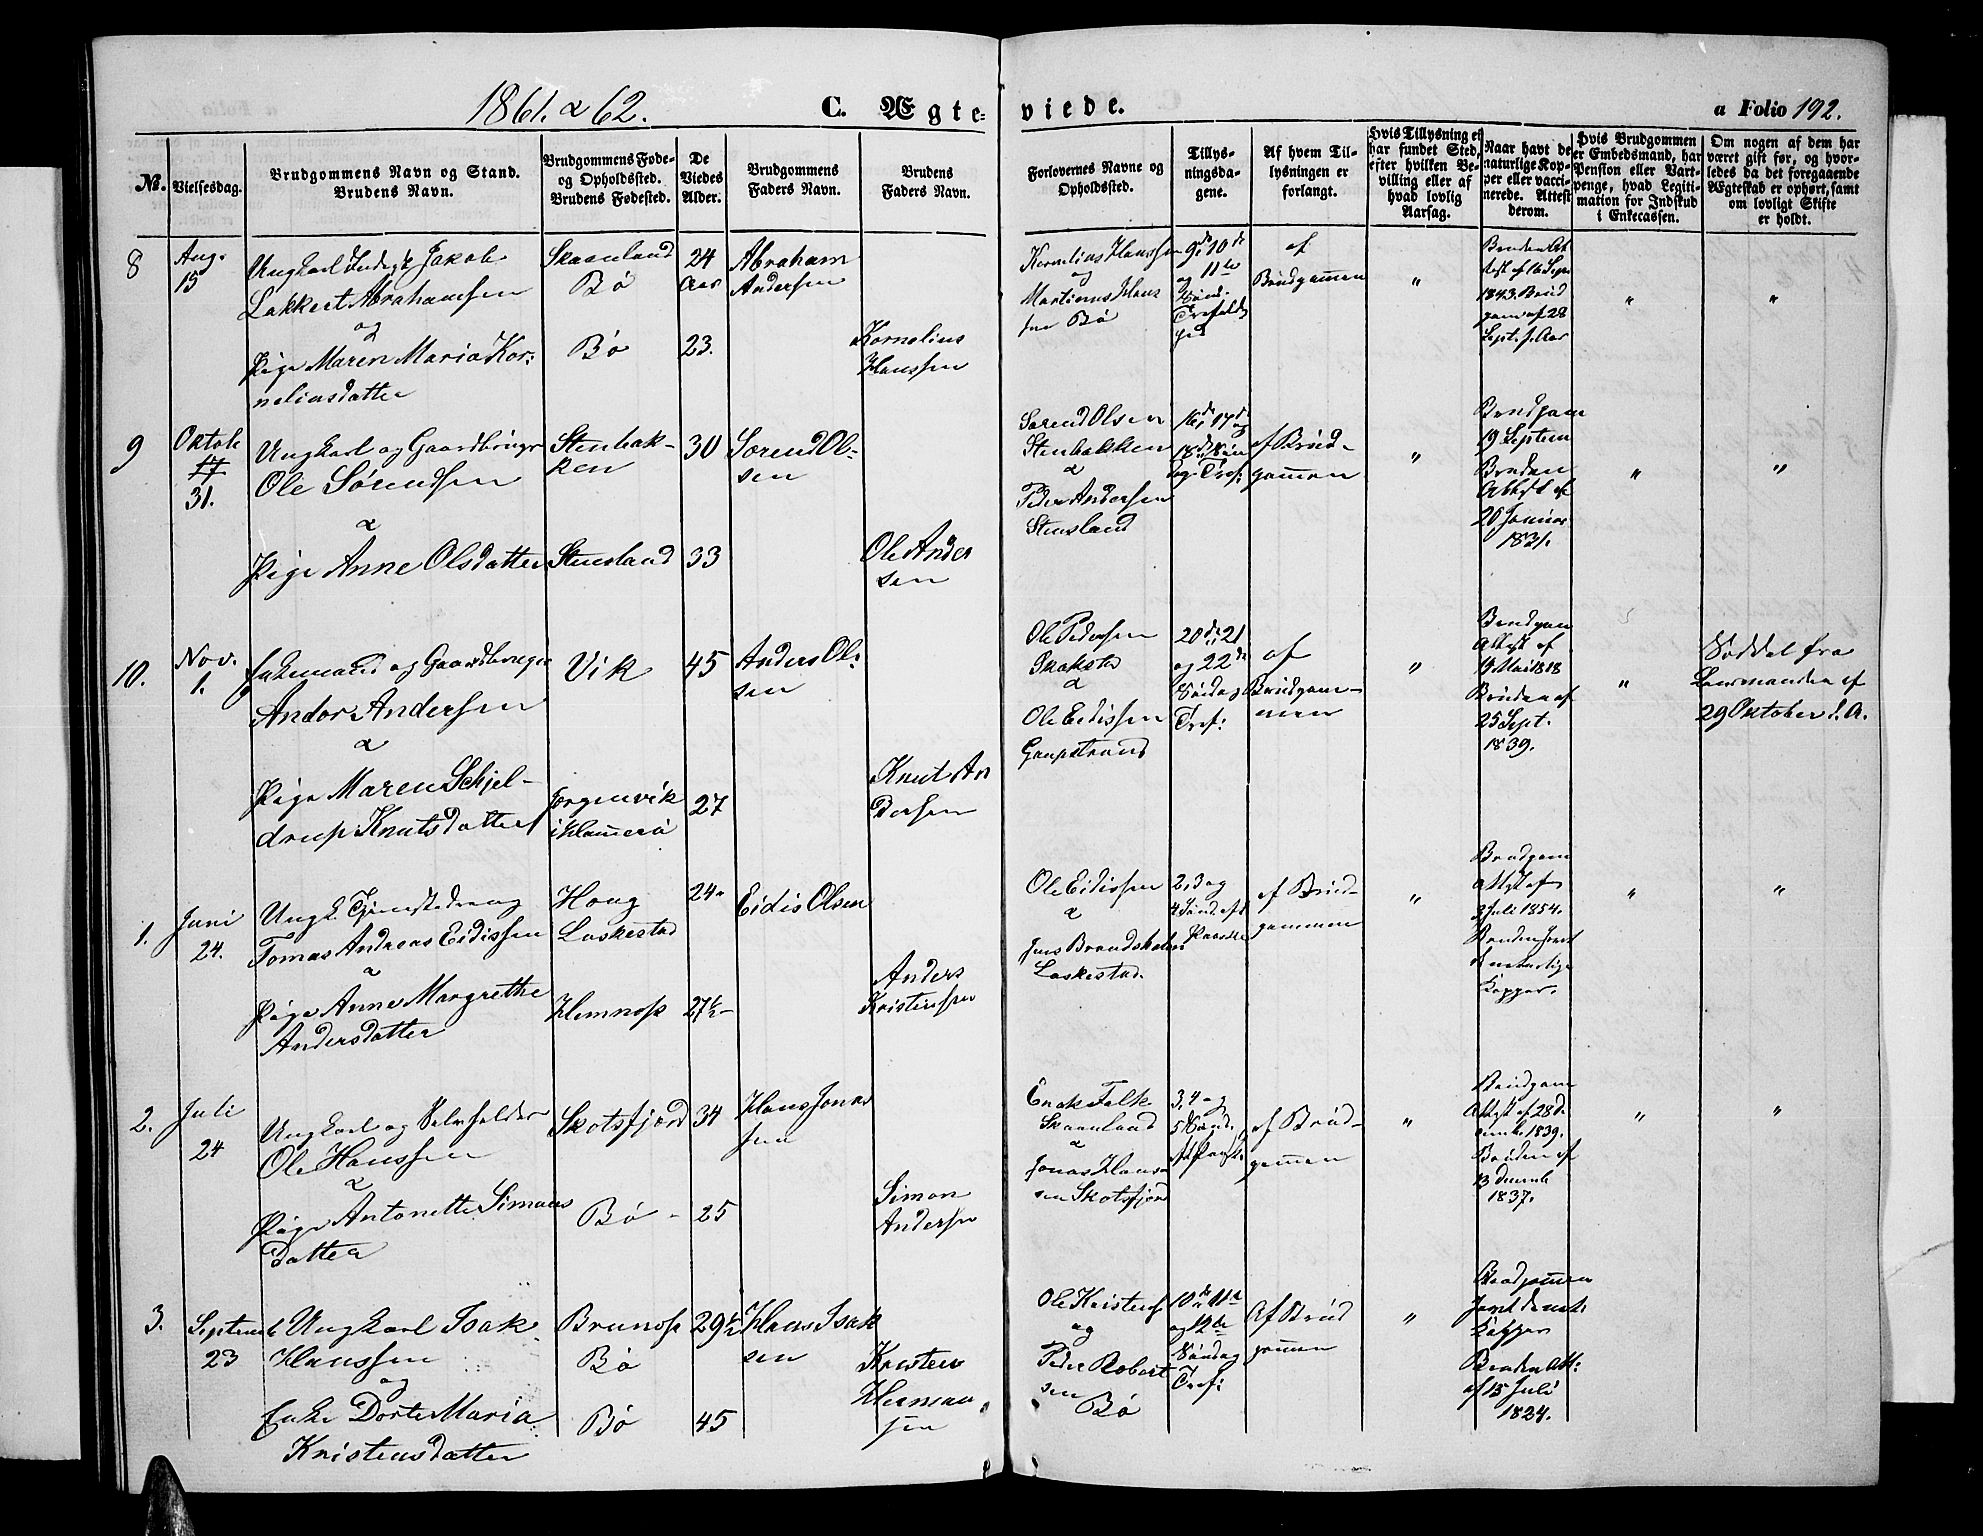 1861. & 62.
C. Ægte-
viede.
a Folio 192.
No.
Vielsesdag.
Brudgommens Navn og Stand.
Brudens Navn.
Brudgommens Føde-
og Opholdssted.
Brudens Fødested.
De
Viedes
Alder.
Brudgommens
Faders Navn.
Brudens
Faders Navn.
Forlovernes Navne og
Opholdssted.
Tillys-
ningsda-
gene.
Af hvem Til-
lysningen er
forlangt.
Hvis Tillysning ei
har fundet Sted,
efter hvilken Be-
villing eller af
hvad lovlig
Aarsag.
Naar havt de
naturlige Kop-
per eller vacci-
nerede. Attest
derom.
Hvis Brudgommen
er Embedsmand, har
Pension eller Vart-
penge, hvad Legiti-
mation for Indskud
i Enkecassen.
Om nogen af dem har
været gift før, og hvor-
ledes da det foregaaende
Ægteskab er ophørt, samt
om lovligt Skifte
er holdt.
8
Aug.
15
Ungkarl Jakob
Lakkert Abrahamsen
og
Pige Maren Maria Kor-
neliusdatter
Skaanland
Bø
Bø
24
Aar
23.
Abraham
Andersen
Kornelius
Hanssen
Kornelius Hanssen
og
Martinus Hans
sen Bø
9de 10de
og 11te
Sønd.
Trefoldig
hed
af
Brudgommen
"
Bruden At
test af 16 Sept
1843. Brud
gom af 28
Sept. s. Aar
"
"
9
Oktob
17
31.
Ungkarl og Gaardbruger
Ole Sørendsen
&
Pige Anne Olsdatter
Stenbak-
ken
Stensland
30
33
Sørend Ol-
sen
Ole Ander
sen
Sørend Olsen
Stenbakken
&
Peder Andersen
Stensland
16de 17de og
18de Søn
dag Tref:
af Brud-
gommen
"
Brudgom
19 Septem
Bruden
Attest af
20 Januar
1831.
"
"
10.
Nov.
1.
Enkemand og Gaardbruger
Andor Andersen
&
Pige Maren Schjel-
drup Knutsdatter
Vik
i Hammerø
45
27
Anders Ol-
sen
Knut An
dersen
Ole Pedersen
Skakstad
&
Ole Eidissen
Gaupstrand
20de 21
og 22de
Søndag
Tref:
af
Brudgom-
men
"
Brudgom
Attest af
19 Mai 1818
Bruden af
25 Sept.
1839.
"
Seddel fra
Lensmanden af
29 Oktober d. A.
1.
Juni
24.
Ungk. Tjenestedreng
Tomas Andreas Eidissen
&
Pige Anne Margrethe
Andersdatter
Haug
Laskestad
Hemnæs
24
27½
Eidis Olsen
Anders
Kristensen
Ole Eidissen
&
Jens Brandsholm
Laskestad.
2, 3 og
4 Sønd. eft
Paaske
af Brud-
gommen
"
Brudgom
Attest af
2 Juli 1854.
Bruden havt
de naturlige
Kopper.
"
"
2.
Juli
24
Ungkarl og Selvfolder
Ole Hanssen
&
Pige Antonette Simons
Datter
Skotsfjord
Bø
34
25
Hans Jonas
sen
Simon
Andersen
Enok Falk
Skaanland
&
Jonas Hans-
sen Skotsfjord
3, 4 og
5 Sønd.
af Brud-
gommen
"
Brudgom
Attest af 28 de
cembr 1839.
Bruden af
13 decemb
1837.
"
"
3.
Septemb
23
Ungkarl Isak
Hanssen
og
Enke Dorte Maria
Kristensdatter
Brunæs
Bø
Bø
29½
45
Hans Isak
sen
Kristen
Herman
sen
Ole Kristens
og
Peder Robert
sen
Bø
10de 11te
og 12te
Søndag
Tref:
Af Brud
gommen
"
Brudgommen
havt de nat.
Kopper
Bruden Att:
af 15 Juli
1824.